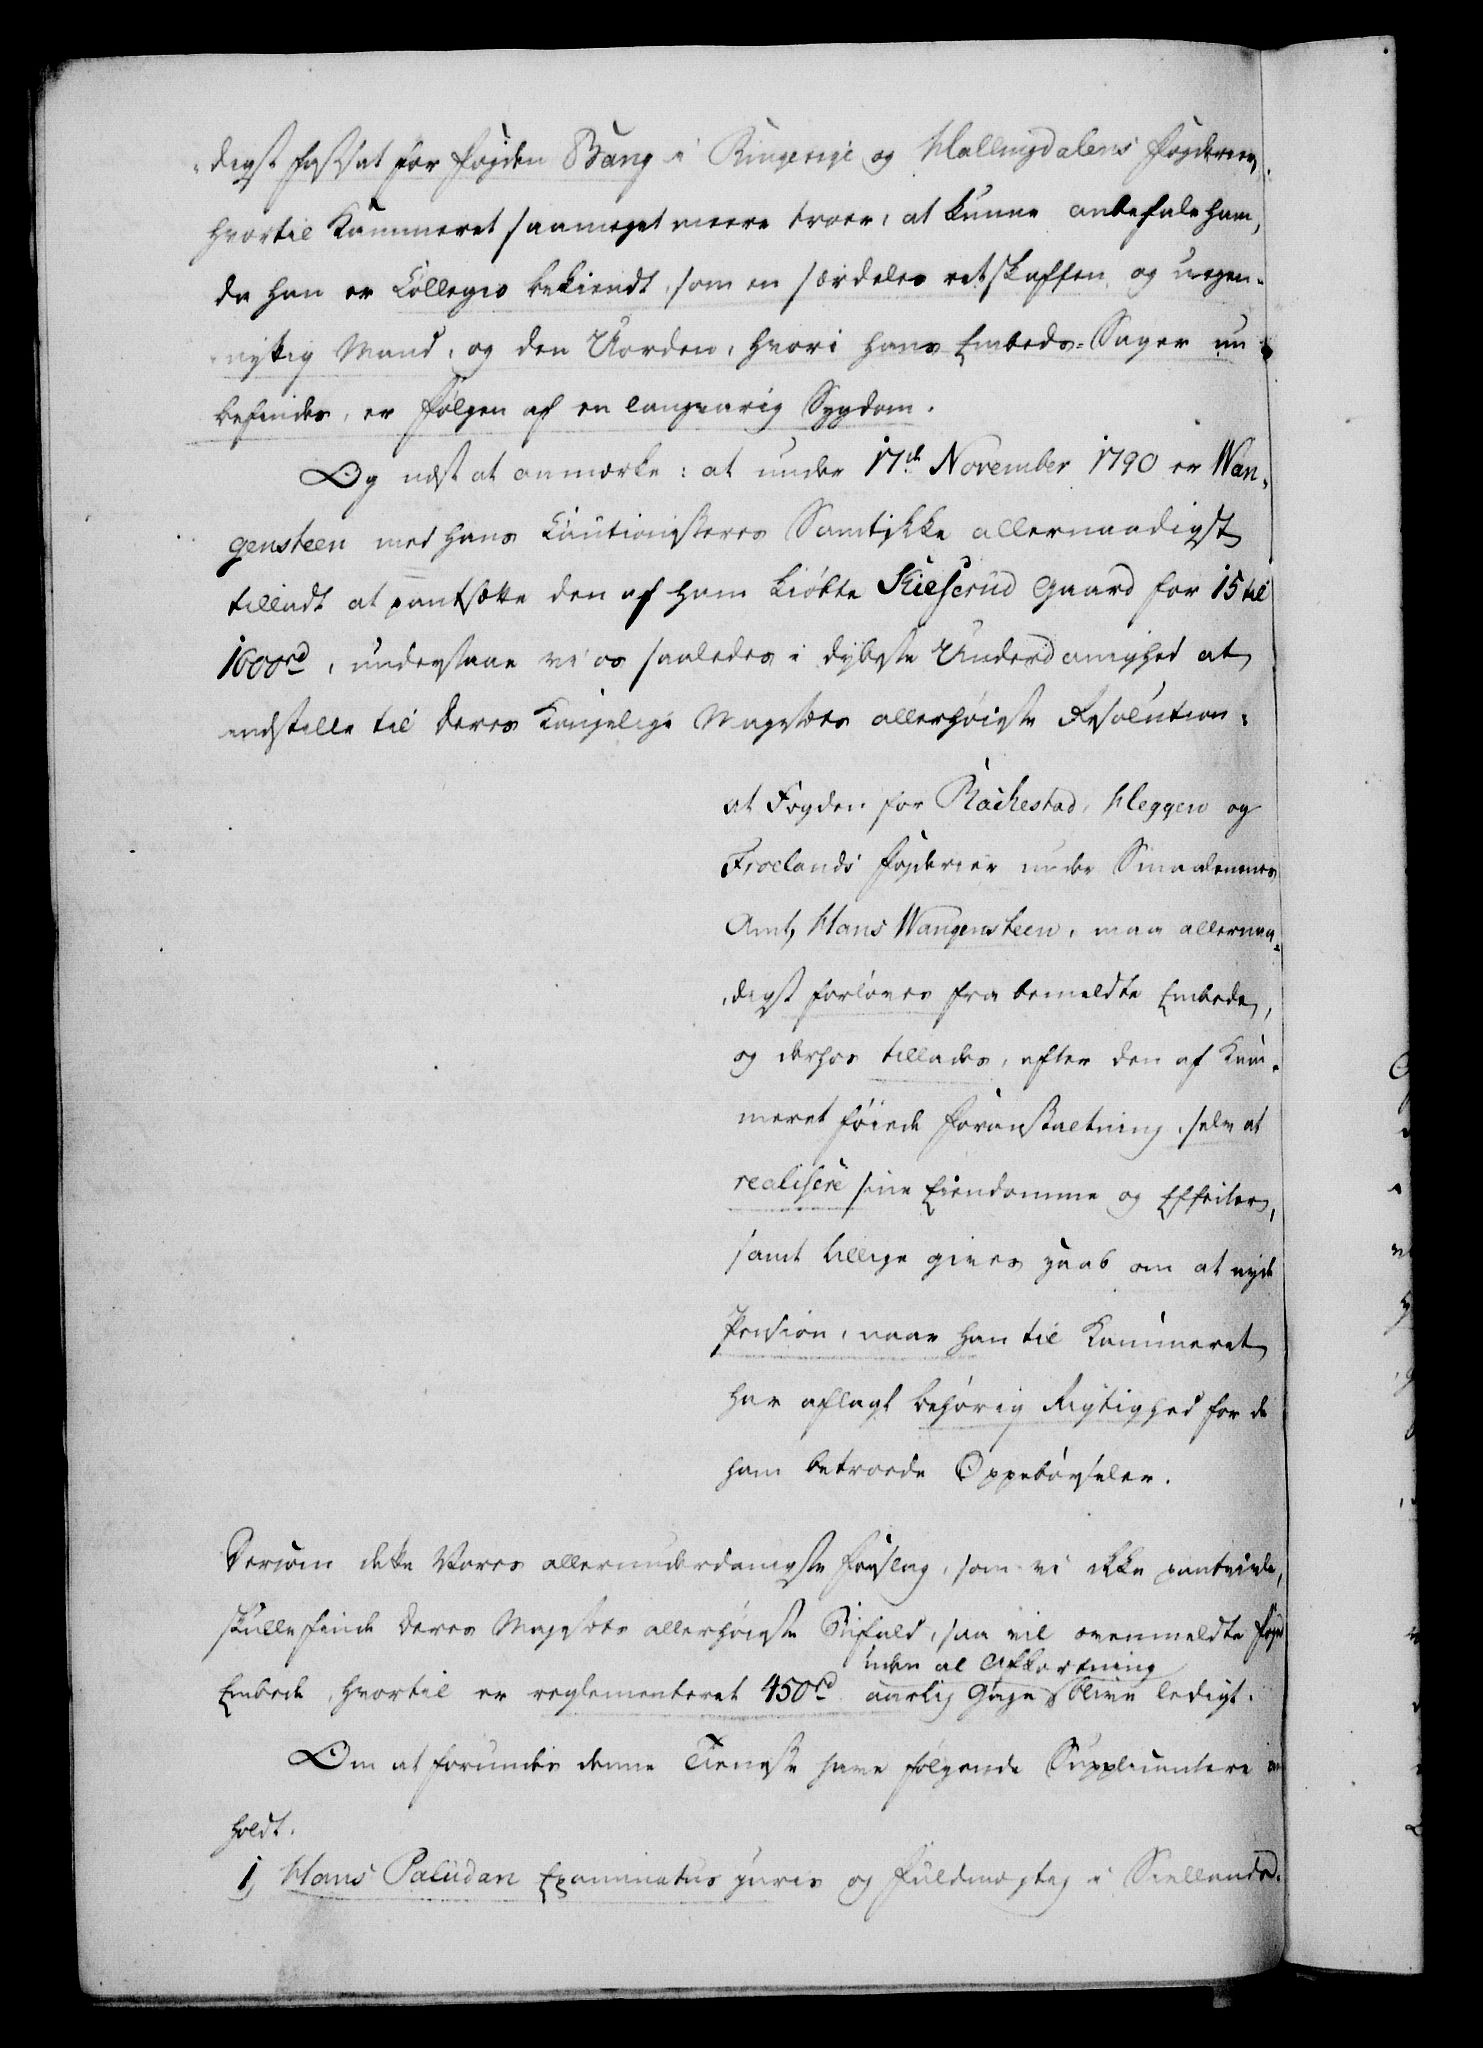 digst fastsat for Fogden Bang i Ringerige og Hallingdalens Fogderier,
hvortil Kammeret saameget meere troer, at kunne anbefale ham,
da han er Collegio bekiendt, som en særdeles retskaffen og uegen-
nyttig Mand, og den Uorden, hvori hans Embeds-Sager nu
befindes, er Følgen af en langvarig Sygdom.
Og næst at anmærke: at under 17de November 1790 er Wan-
gensteen med hans Cautionisteres Samtykke allernaadigst
tilladt at pantsætte den af ham kiøbte Kielserud Gaard for 15 til
1600rd, understaae vi os saaledes i dybeste Underdanighed at
indstille til Deres Kongelige Majestæts allerhøieste Resolution:
at Fogden for Rackestad, Heggen og
Froelands Fogderier under Smaalenenes
Amt, Hans Wangensteen, maa allernaa-
digst forløves fra bemeldte Embede,
og derhos tillades, efter den af Kam-
meret føiede Foranstaltning, selv at
realisere sine Eiendomme og Effecter,
samt tillige gives Haab om at nyde
Pension, naar han til Kammeret
har aflagt behørig Rigtighed for de
ham betroede Oppebørseler.
Dersom dette Vores allerunderdanigste Forslag, som vi ikke paatvivle,
skulle finde Deres Majestæts allerhøieste Bifald, saa vil ovenmeldte Foged
uden al Afkortning
Embede, hvortil er reglementeret 450rd aarlig Gage blive ledigt.
Om at forundes denne Tieneste have følgende Supplicantere an
holdt.
1, Hans Paludan Examinatus juris og Fuldmægtig i Siellands